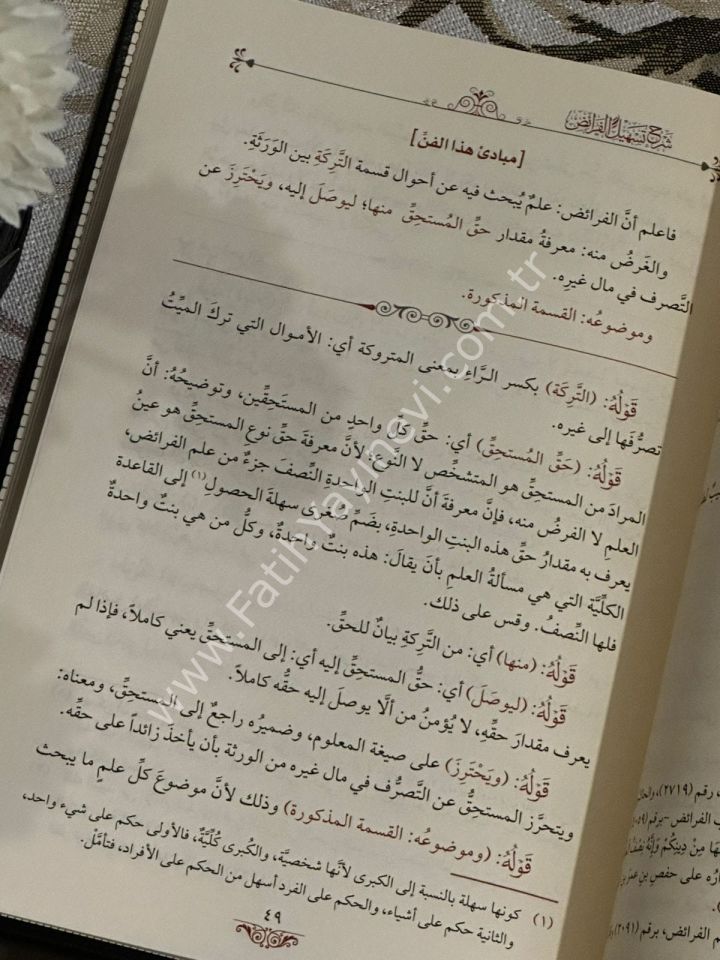 شرح تسهيل الفرائض
[مبادئ هذا الفنّ]
فاعلم أنَّ الفرائض: علمٌ يُبحث فيه عن أحوال قسمة التَّرِكَةِ بين الوَرَثَةِ.
والغَرضُ منه: معرفةُ مقدار حقِّ المُستحِقِّ منها؛ ليوصَلَ إليه، ويَحْتَرِزَ عن
التَّصرف في مال غيرِه.
وموضوعُه: القسمة المذكورة.
قَوْلُهُ: (التَّرِكَة) بكسر الرَّاءِ بمعنى المتروكة أي: الأموال التي تركَ الميِّتُ
تصرُّفَها إلى غيره.
قَوْلُهُ: (حَقّ المُستحِقِّ) أي: حقِّ كلِّ واحدٍ من المستَحِقِّين، وتوضيحُهُ: أنَّ
المرادَ من المستحِقِّ هو المتشخِّص لا النَّوعُ؛ لأنَّ معرفةَ حقِّ نوعِ المستحِقِّ هو عينُ
العلمِ لا الغرضُ منه، فإنَّ معرفةَ أنَّ للبنتِ الواحدةِ النِّصفَ جزءٌ من علم الفرائض،
يعرف به مقدارُ حقِّ هذه البنتِ الواحدةِ، بضَمِّ صُغرى سهلةَ الحصولِ(١) إلى القاعدة
الكلِّيَّة التي هي مسألةُ العلمِ بأنَ يقالَ: هذه بنتٌ واحدةٌ، وكلُّ من هي بنتٌ واحدةٌ
فلها النِّصفُ. وقس على ذلك.
قَوْلُهُ: (منها) أي: من التَّرِكةِ بيانٌ للحقِّ.
قَوْلُهُ: (ليوصَلَ) أي: حقُّ المستحِقِّ إليه أي: إلى المستحِقِّ يعني كاملاً، فإذا لم
يعرف مقدارَ حقِّهِ، لا يُؤمنُ من ألَّا يوصلَ إليه حقُّه كاملاً.
قَوْلُهُ: (ويَحْتَرِزَ) على صيغة المعلوم، وضميرُه راجعٌ إلى المستحِقِّ، ومعناه:
ويتحرَّز المستحِقُّ عن التَّصرُّف في مال غيره من الورثة بأن يأخذَ زائداً على حقِّه.
قَوْلُهُ: (وموضوعُه: القسمة المذكورة) وذلك لأنَّ موضوعَ كلِّ علمٍ ما يبحث
(١) كونها سهلة بالنسبة إلى الكبرى لأنَّها شخصيَّة، والكُبرى كُلِّيَّةٌ، فالأولى حكم على شيء واحد،
والثانية حكم على أشياء، والحكم على الفرد أسهل من الحكم على الأفراد، فتأمَّلْ.
٤٩
، رقم (٢٧١٩)، والحا
ب الفرائض -برقم
هَا مِنْ دِينِكُمْ وَإِنَّهُ نِصْفُ
ارُه على حفصِ بن عمرَ بنِ
م الفرائض، برقم (٢٠٩١)
www.FatihYayinevi.com.tr